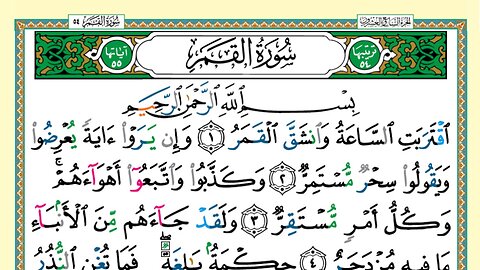 سُورَةُ القَمَرِ ٥٤
الجزء السابع والعشرون
آيَاتُهَا ٥٥
سُورَةُ القَمَرِ
ترتيبها ٥٤
بِسْمِ اللَّهِ الرَّحْمَٰنِ الرَّحِيمِ
ٱقْتَرَبَتِ ٱلسَّاعَةُ وَٱنشَقَّ ٱلْقَمَرُ ١ وَإِن يَرَوْا۟ ءَايَةً يُعْرِضُوا۟
وَيَقُولُوا۟ سِحْرٌ مُّسْتَمِرٌّ ٢ وَكَذَّبُوا۟ وَٱتَّبَعُوٓا۟ أَهْوَآءَهُمْ ۚ
وَكُلُّ أَمْرٍ مُّسْتَقِرٌّ ٣ وَلَقَدْ جَآءَهُم مِّنَ ٱلْأَنۢبَآءِ
مَا فِيهِ مُزْدَجَرٌ ٤ حِكْمَةٌۢ بَٰلِغَةٌ ۖ فَمَا تُغْنِ ٱلنُّذُرُ